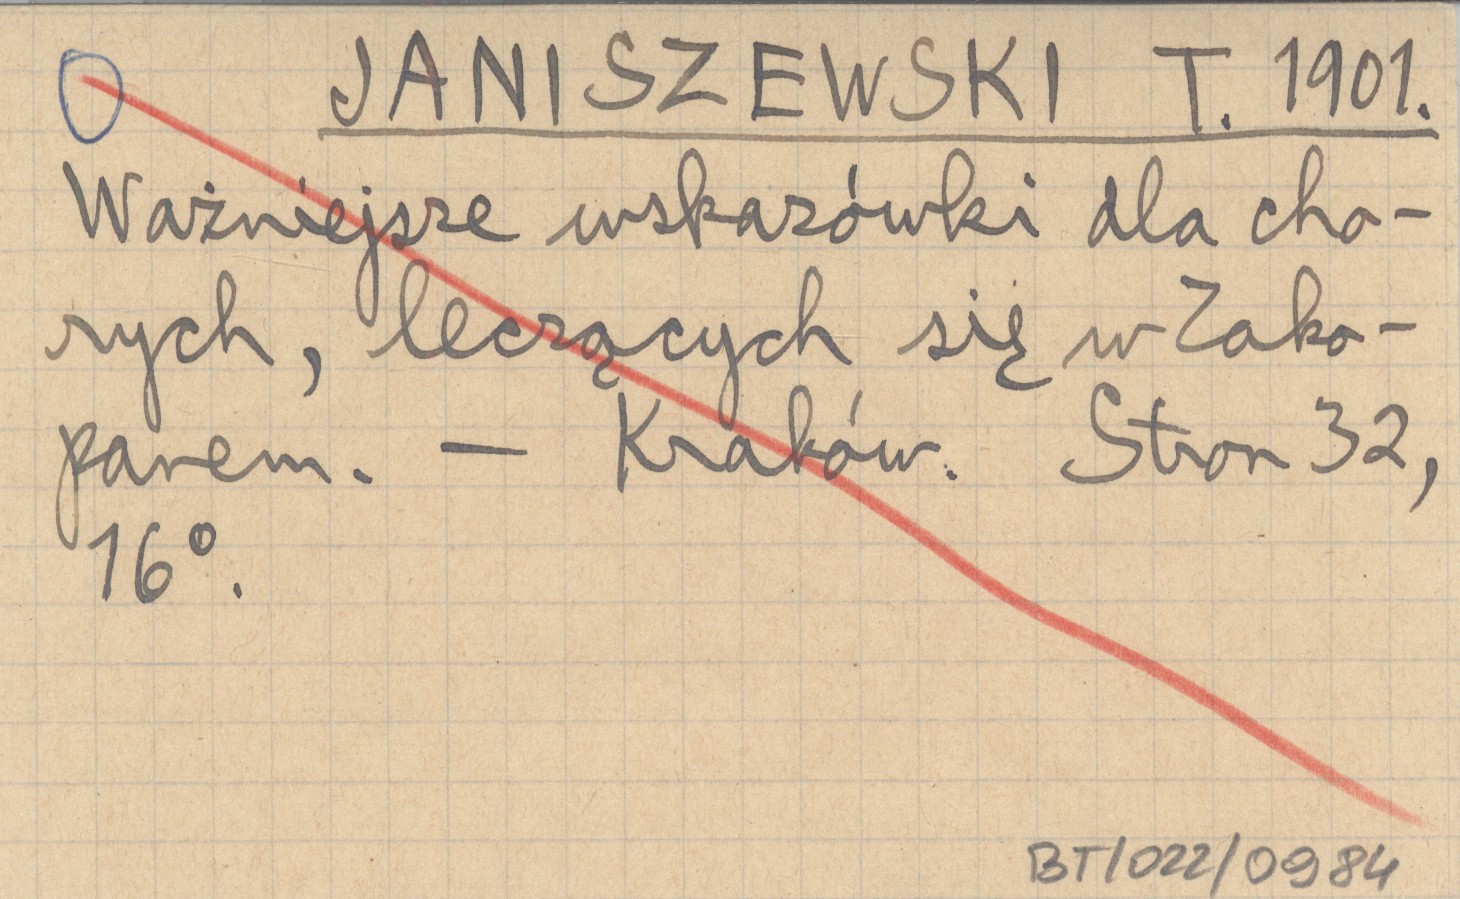 JANISZEWSKI T. 1901.
Ważniejsze wskazówki dla cho-
rych, leczących się w Zako-
panem. — Kraków. Stron 32,
16°.
BT/022/0984